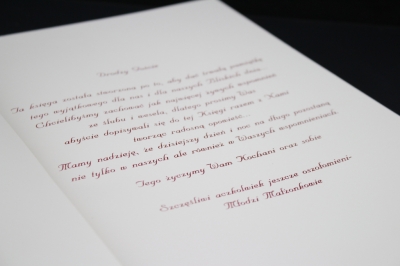 Drodzy Goście
Ta księga została stworzona po to, aby dać trwałą pamiątkę
tego wyjątkowego dla nas i dla naszych Bliskich dnia.
Chcielibyśmy zachować jak najwięcej żywych wspomnień
ze ślubu i wesela, dlatego prosimy Was
abyście dopisywali się do tej Księgi razem z Nami
tworząc radosną opowieść...
Mamy nadzieję, że dzisiejszy dzień i noc na długo pozostaną
nie tylko w naszych ale również w Waszych wspomnieniach
Tego życzymy Wam Kochani oraz sobie
Szczęśliwi aczkolwiek jeszcze oszołomieni-
Młodzi Małżonkowie